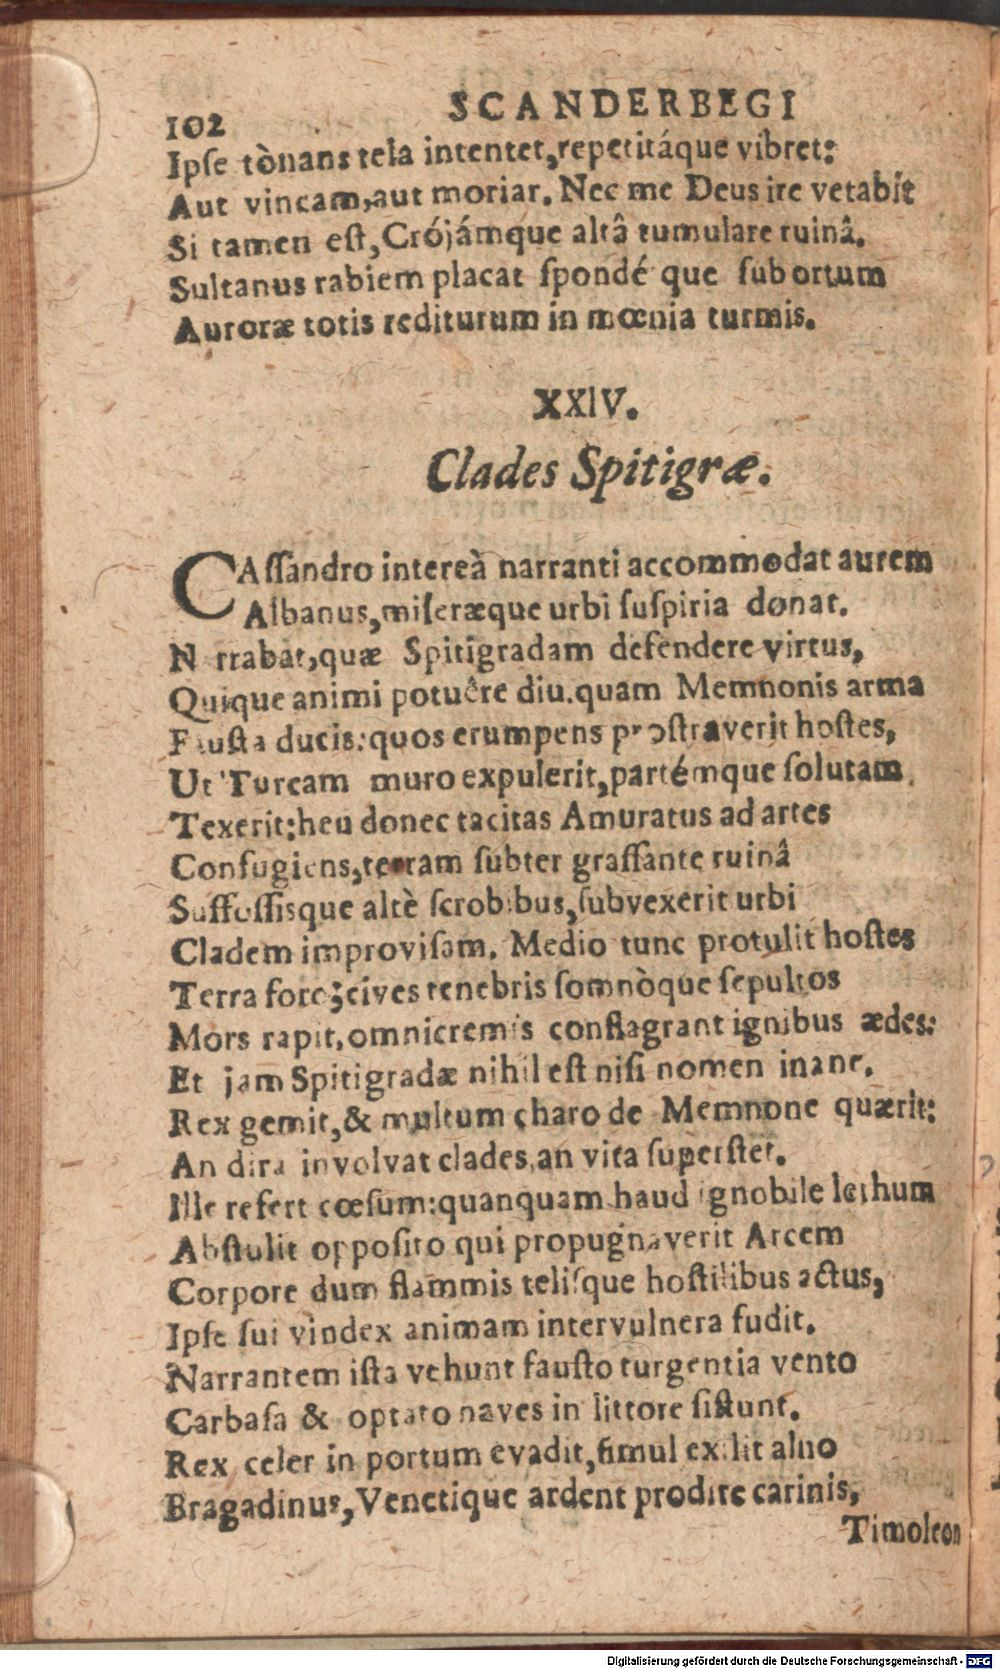 102 SCANDERBEGI
Ipſe tònans tela intentet,repetitáque vibret:
Aut vincam,aut moriar. Nec me Deus ire vetabit
Si tamen eſt,Crójámque altâ tumulare ruinâ.
Sultanus rabiem placat ſpondé que ſub ortum
Auroræ totis rediturum in mœnia turmis.
XXIV.
Clades Spitigræ.
CAſſandro intereà narranti accommodat aurem
Albanus,miſeræque urbi ſuſpiria donat.
N rrabat,quæ Spitigradam defendere virtus,
Quique animi potuêre diu.quam Memnonis arma
Fauſta ducis:quos erumpens proſtraverit hoſtes,
Ut Turcam muro expulerit,partémque ſolutam
Texerit:heu donec tacitas Amuratus ad artes
Confugiens,terram ſubter graſſante ruinâ
Suffoſſisque altè ſcrobibus,ſubvexerit urbi
Cladem improviſam. Medio tunc protulit hoſtes
Terra foro;cives tenebris ſomnòque ſepultos
Mors rapit,omnicremis conflagrant ignibus ædes:
Et jam Spitigradæ nihil eſt niſi nomen inane.
Rex gemit,& multum charo de Memnone quærit:
An dira involvat clades,an vita ſuperſtet.
Ille refert cœſum:quanquam haud ignobile lethum
Abſtulit oppoſito qui propugnaverit Arcem
Corpore dum flammis teliſque hoſtilibus actus,
Ipſe ſui vindex animam intervulnera fudit.
Narrantem iſta vehunt fauſto turgentia vento
Carbaſa & optato naves in littore ſiſtunt.
Rex celer in portum evadit,ſimul exilit alno
Bragadinus,Venetique ardent prodire carinis,
Timoleon
Digitalisierung gefördert durch die Deutsche Forschungsgemeinschaft - DFG